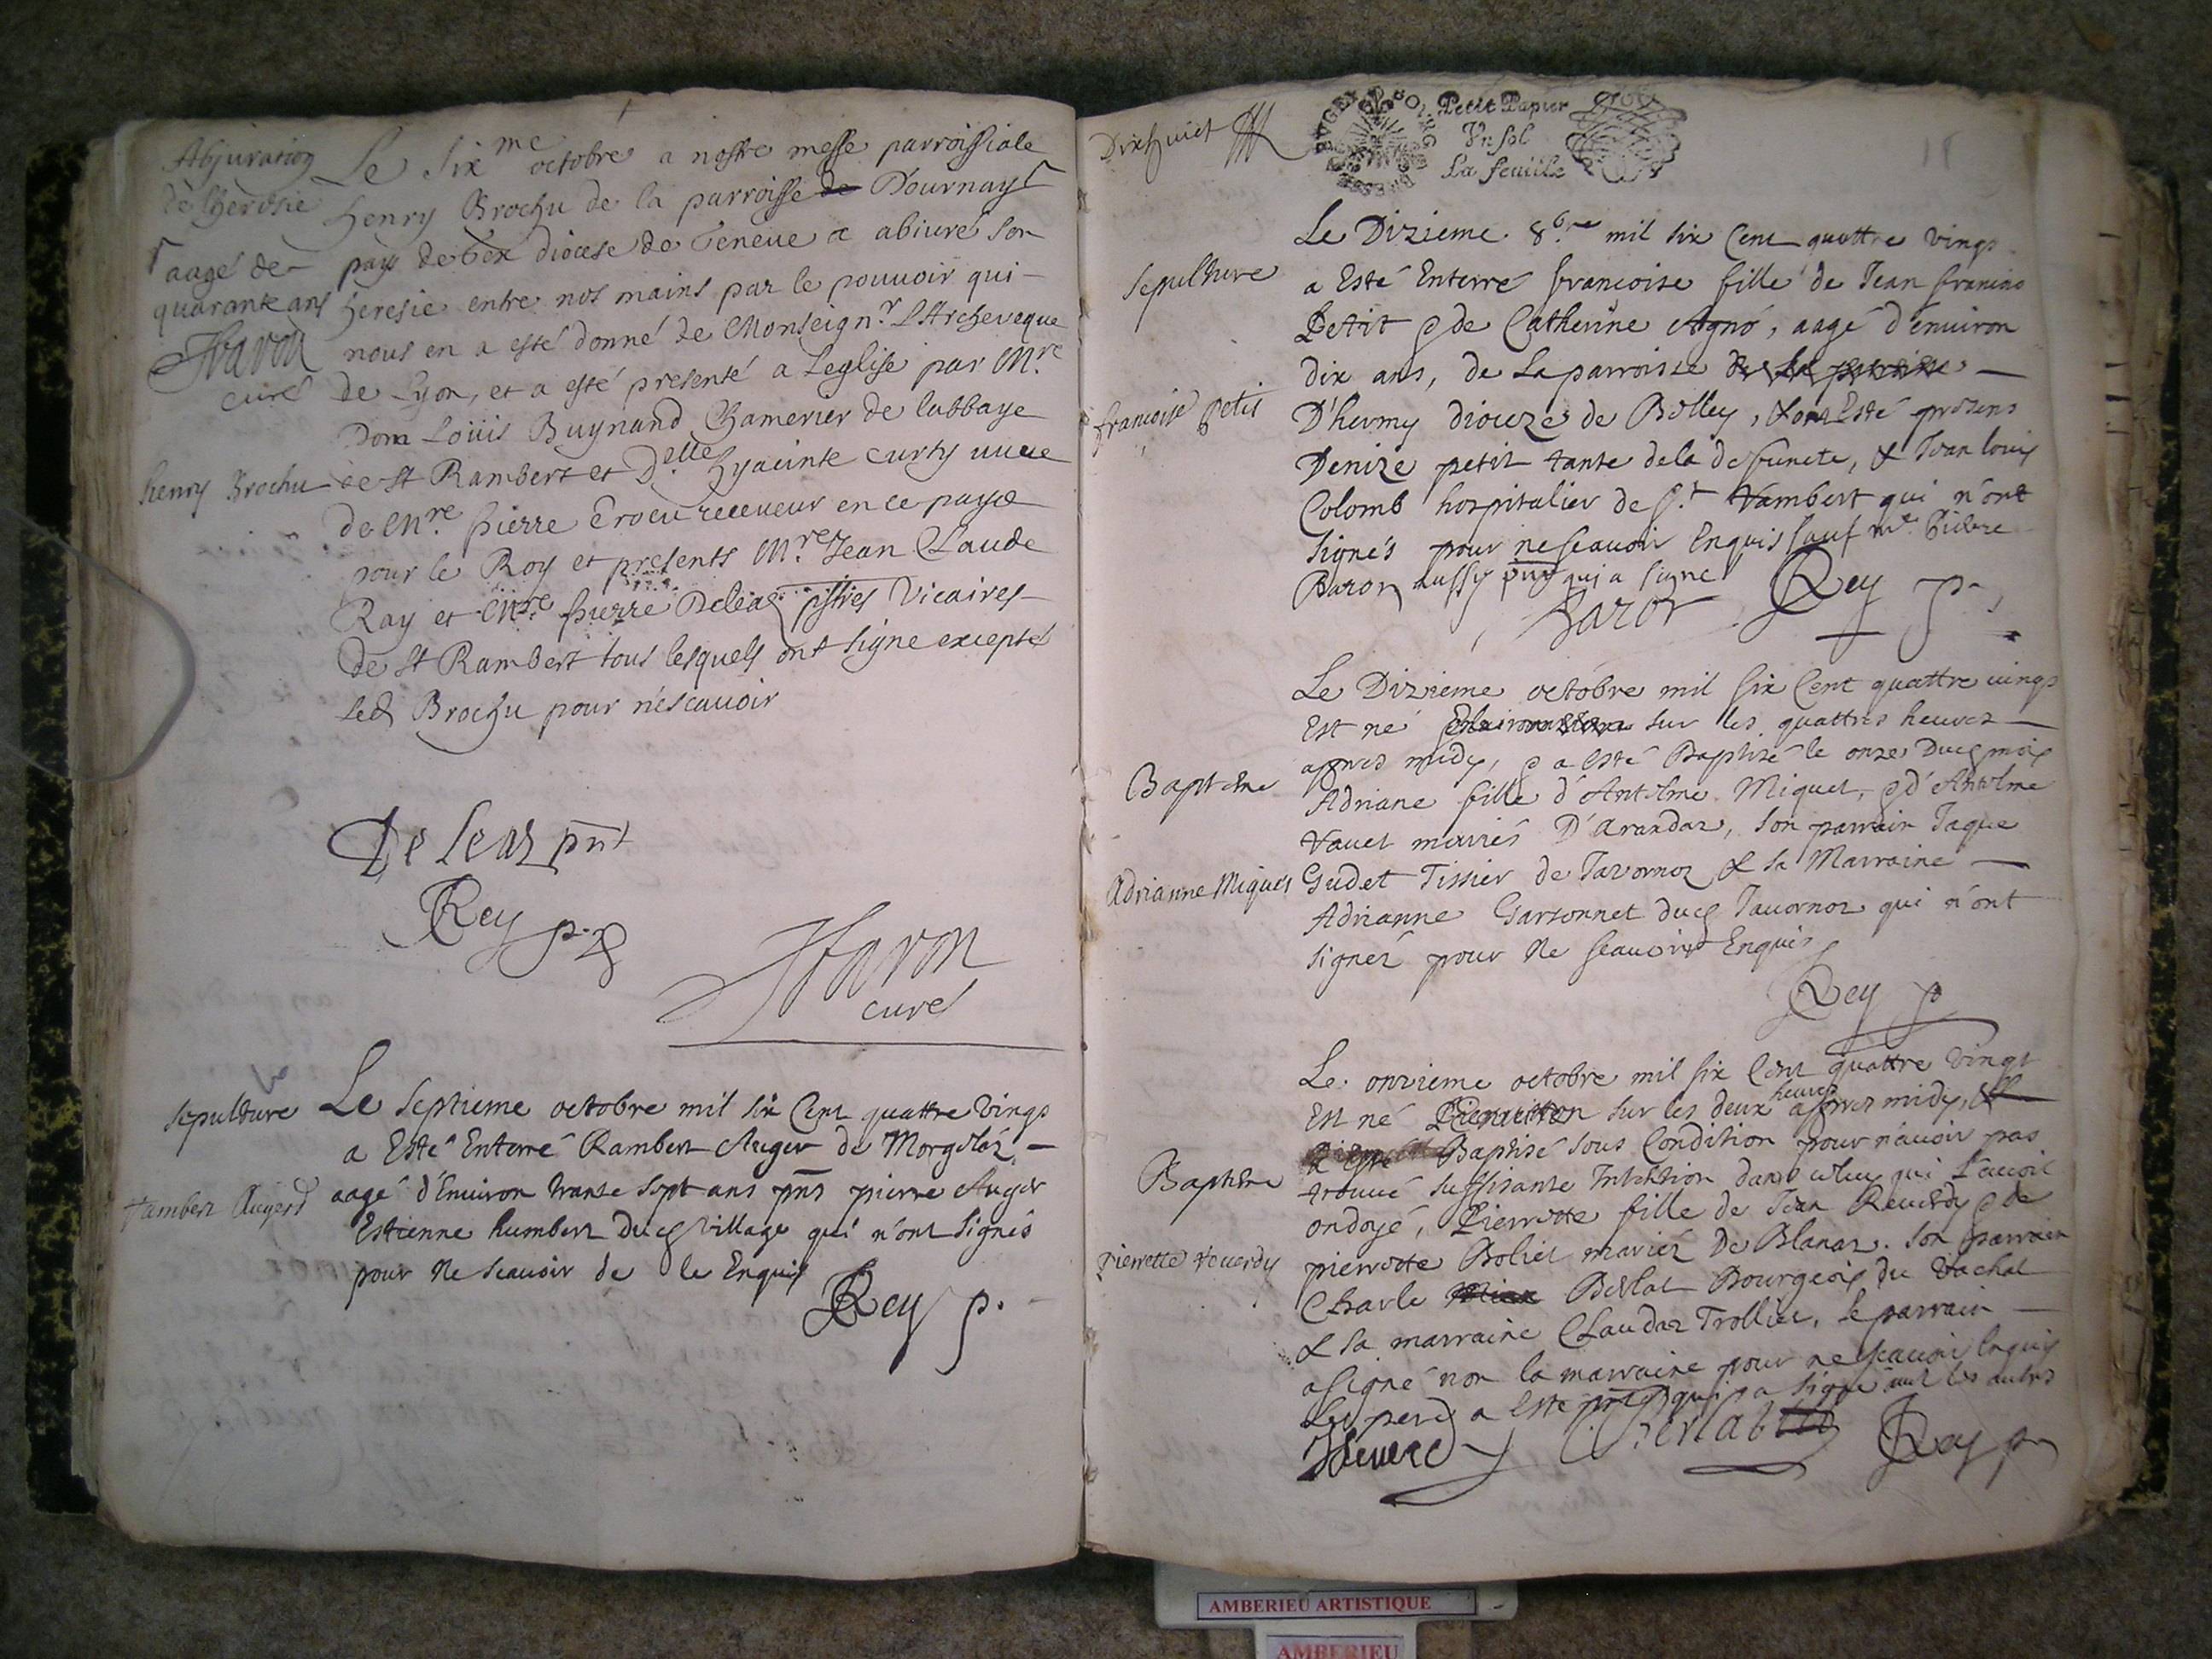 Abjuration
de lheresie
aagé de
quarante ans
Favon
curé
henry Brochu
Le Six me octobre a nostre messe parroissiale
henry Brochu de la parroisse de Dournay
pays de Gex diocese de Geneue a abiuré son
heresie entre nos mains par le pouuoir qui
nous en a esté donné de Monseignr LArcheveque
de Lyon, et a esté presenté a Leglise par Mre
Dom Loüis Buynand Chamerier de labbaye
de st Rambert et Delle hyacinte curty
de Mre pierre receueur en ce pays
pour le Roy et presents Mre Jean Claude
Ray et Mre pierre Deleaz pstres Vicaires
de st Rambert tous lesquels ont signe excepté
led Brochu pour ne scauoir
De leaz pnt
Rey p.
Favon
curé
sepulture
rambert Augerd
Le Septieme octobre mil six Cent quattre vings
a Esté Enterré Rambert Auger de Morgelaz
aagé d'Enuiron trante sept ans pnts pierre Auger
Estienne humbert dud village qui n'ont signés
pour ne scauoir de le Enquis
Rey p.
Dixhuict
Petit Papier
Vn sol
La feuille
sepulture
francoise petit
Le Dizieme 8bre mil six Cent quattre vings
a Esté Enterré francoise fille de Jean francois
Petit & de Catherine Agnó, aagé d'enuiron
dix ans, de La parroisse
D'hermy dioceze de Belley, & ont Esté presens
Denize petit tante de la defuncte, & Jean louis
Colomb hospitalier de St Rambert qui n'ont
signés pour ne scauoir Enquis sauf mre Pierre
Baron aussy pnt qui a signe
Baron
Rey p.
Baptême
Adrianne Miguet
Le Dizieme octobre mil six Cent quattre vings
Est né sur les quattres heures
apres midy, & a esté Baptizé le onze Dud mois
Adriane fille d'Antelme Miguet, & d'Antelme
Vauet mariés D'arandaz, son parrain Jaque
Gudet Tissier de Tavornoz & sa Marraine
Adrianne Garsonnet dud Tauornoz qui n'ont
signéz pour ne scauoir Enquis
Rey p
Baptême
Pierrette reuerdy
Le onzieme octobre mil six Cent quattre vingt
Est né sur les deux heures apres midy, &
a esté Baptisé sous Condition pour n'auoir pas
trouué suffisante Intention dans celuy qui l'auoit
ondoyé, Pierrette fille de Jean Reuerdy & de
pierrette Boliet mariéz De Blanaz. son parrain
Charle Berlat Bourgeois du Vachat
& sa marraine Claudaz Trolliet, le parrain
a signé non la marraine pour ne scauoir Enquis
Led pere a esté pnt qui a signe auec les autres
Reuerdy
Berlat
Rey p
AMBERIEU ARTISTIQUE
AMBERIEU